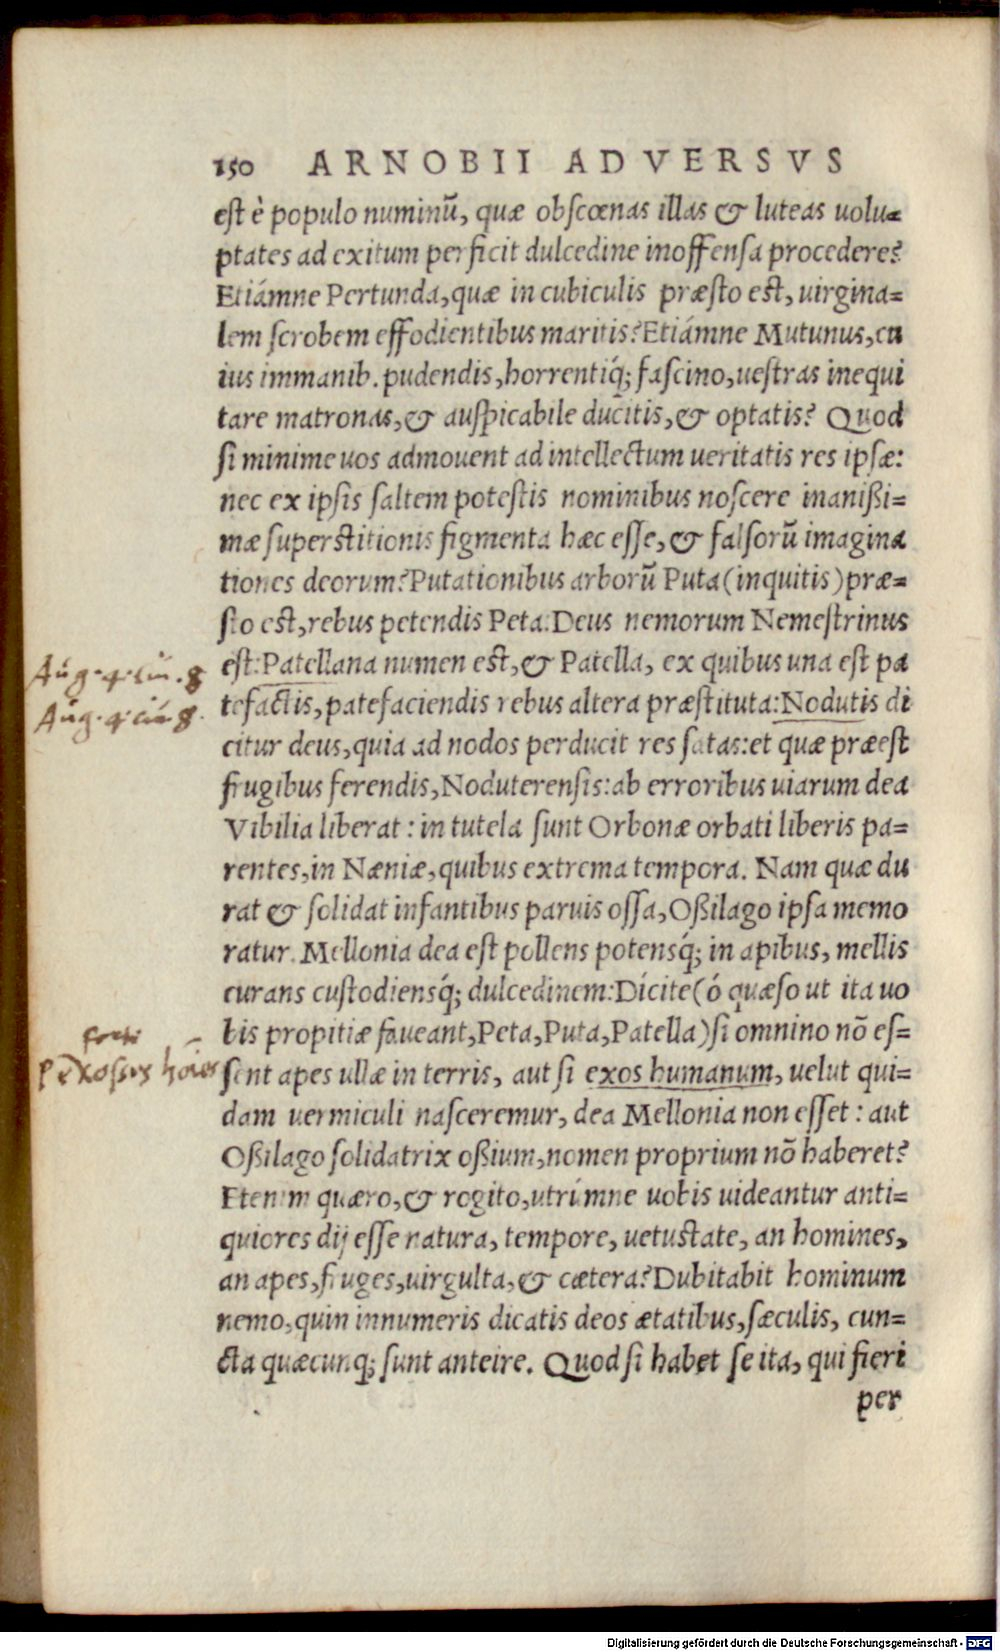 150 ARNOBII ADVERSVS
est è populo numinũ, quæ obscœnas illas & luteas uolu=
ptates ad exitum perficit dulcedine inoffensa procedere?
Etiámne Pertunda, quæ in cubiculis præsto est, uirgina=
lem scrobem effodientibus maritis? Etiámne Mutunus, cu
ius immanib. pudendis, horrentiq́; fascino, uestras inequi
tare matronas, & auspicabile ducitis, & optatis? Quod
si minime uos admouent ad intellectum ueritatis res ipsæ:
nec ex ipsis saltem potestis nominibus noscere inanißi=
mæ superstitionis figmenta hæc esse, & falsorũ imagina
tiones deorum? Putationibus arborũ Puta (inquitis) præ=
sto est, rebus petendis Peta: Deus nemorum Nemestrinus
est: Patellana numen est, & Patella, ex quibus una est pa
Aug. 4. ciu. 8
tefactis, patefaciendis rebus altera præstituta: Nodutis di
Aug. 4. ciu. 8.
citur deus, quia ad nodos perducit res satas: et quæ præest
frugibus ferendis, Noduterensis: ab erroribus uiarum dea
Vibilia liberat: in tutela sunt Orbonæ orbati liberis pa=
rentes, in Næniæ, quibus extrema tempora. Nam quæ du
rat & solidat infantibus paruis ossa, Oßilago ipsa memo
ratur. Mellonia dea est pollens potensq́; in apibus, mellis
curans custodiensq́; dulcedinem: Dícite (ó quæso ut ita uo
bis propitiæ faueant, Peta, Puta, Patella) si omnino nõ es=
sent apes ullæ in terris, aut si exos humanum, uelut qui=
dam uermiculi nasceremur, dea Mellonia non esset: aut
Oßilago solidatrix oßium, nomen proprium nõ haberet?
Etenim quæro, & rogito, utrímne uobis uideantur anti=
quiores dij esse natura, tempore, uetustate, an homines,
an apes, fruges, uirgulta, & cætera? Dubitabit hominum
nemo, quin innumeris dicatis deos ætatibus, sæculis, cun=
cta quæcunq; sunt anteire. Quod si habet se ita, qui fieri
per
Digitalisierung gefördert durch die Deutsche Forschungsgemeinschaft - DFG